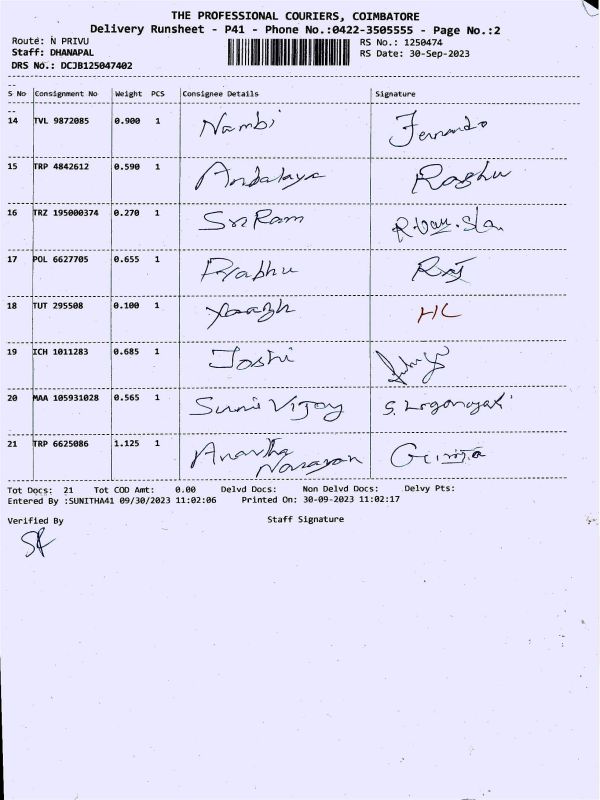 THE PROFESSIONAL COURIERS, COIMBATORE
Delivery Runsheet - P41 - Phone No.:0422-3505555 - Page No.:2
Route: N PRIVU RS No.: 1250474
Staff: DHANAPAL RS Date: 30-Sep-2023
DRS No.: DCJB125047402
S No Consignment No Weight PCS Consignee Details Signature
14 TVL 9872085 0.900 1 Nambi Fernando
15 TRP 4842612 0.590 1 Raghu
16 TRZ 195000374 0.270 1 Sri Ram
17 POL 6627705 0.655 1 Prabhu Raj
18 TUT 295508 0.100 1 HC
19 ICH 1011283 0.685 1 Joshi
20 MAA 105931028 0.565 1 Vijoy S. Loganayaki
21 TRP 6625086 1.125 1 Anantha Narayan
Tot Docs: 21 Tot COD Amt: 0.00 Delvd Docs: Non Delvd Docs: Delvy Pts:
Entered By :SUNITHA41 09/30/2023 11:02:06 Printed On: 30-09-2023 11:02:17
Verified By Staff Signature